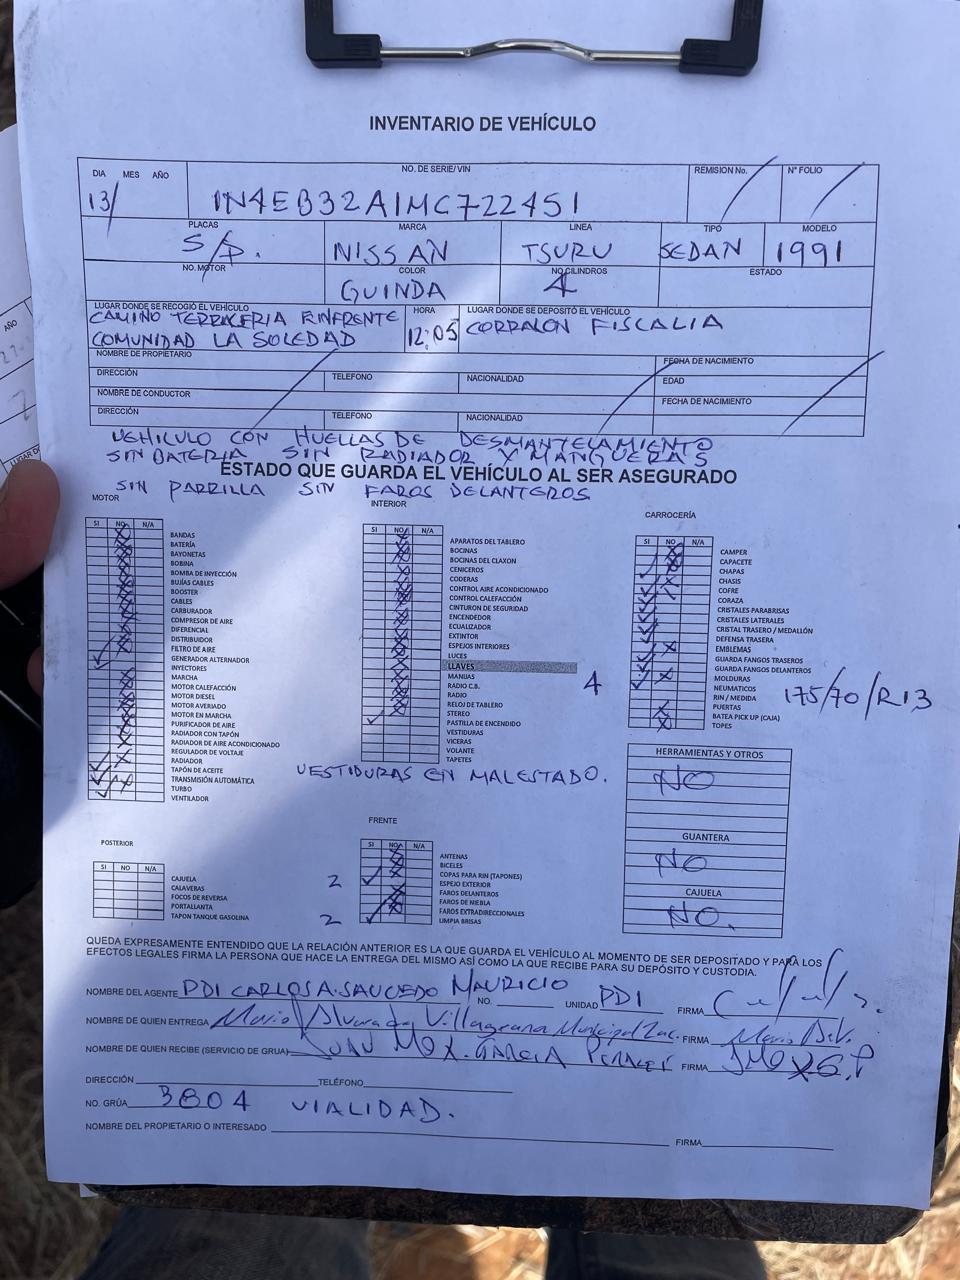 INVENTARIO DE VEHÍCULO
DIA MES AÑO
NO. DE SERIE/VIN
REMISION No.
N° FOLIO
13/
1N4EB32A1MC722451
PLACAS
MARCA
LINEA
TIPO
MODELO
S/P.
NISSAN
TSURU
SEDAN
1991
NO. MOTOR
COLOR
NO. CILINDROS
ESTADO
GUINDA
4
LUGAR DONDE SE RECOGIÓ EL VEHÍCULO
HORA
LUGAR DONDE SE DEPOSITÓ EL VEHÍCULO
CAMINO TERRACERIA ENFRENTE
COMUNIDAD LA SOLEDAD
12:05
CORRALON FISCALIA
NOMBRE DE PROPIETARIO
FECHA DE NACIMIENTO
DIRECCIÓN
TELEFONO
NACIONALIDAD
EDAD
NOMBRE DE CONDUCTOR
FECHA DE NACIMIENTO
DIRECCIÓN
TELEFONO
NACIONALIDAD
VEHICULO CON HUELLAS DE DESMANTELAMIENTO
SIN BATERIA SIN RADIADOR Y MANGUERAS
ESTADO QUE GUARDA EL VEHÍCULO AL SER ASEGURADO
SIN PARRILLA SIN FAROS DELANTEROS
MOTOR
SI NO N/A
BANDAS
BATERÍA
BAYONETAS
BOBINA
BOMBA DE INYECCIÓN
BUJÍAS CABLES
BOOSTER
CABLES
CARBURADOR
COMPRESOR DE AIRE
DIFERENCIAL
DISTRIBUIDOR
FILTRO DE AIRE
GENERADOR ALTERNADOR
INYECTORES
MARCHA
MOTOR CALEFACCIÓN
MOTOR DIESEL
MOTOR AVERIADO
MOTOR EN MARCHA
PURIFICADOR DE AIRE
RADIADOR CON TAPÓN
RADIADOR DE AIRE ACONDICIONADO
REGULADOR DE VOLTAJE
RADIADOR
TAPÓN DE ACEITE
TRANSMISIÓN AUTOMÁTICA
TURBO
VENTILADOR
INTERIOR
SI NO N/A
APARATOS DEL TABLERO
BOCINAS
BOCINAS DEL CLAXON
CENICEROS
CODERAS
CONTROL AIRE ACONDICIONADO
CONTROL CALEFACCIÓN
CINTURON DE SEGURIDAD
ENCENDEDOR
ECUALIZADOR
EXTINTOR
ESPEJOS INTERIORES
LUCES
LLAVES
MANIJAS
RADIO C.B.
RADIO
RELOJ DE TABLERO
STEREO
PASTILLA DE ENCENDIDO
VESTIDURAS
VICERAS
VOLANTE
TAPETES
VESTIDURAS EN MALESTADO.
CARROCERÍA
SI NO N/A
CAMPER
CAPACETE
CHAPAS
CHASIS
COFRE
CORAZA
CRISTALES PARABRISAS
CRISTALES LATERALES
CRISTAL TRASERO / MEDALLÓN
DEFENSA TRASERA
EMBLEMAS
GUARDA FANGOS TRASEROS
GUARDA FANGOS DELANTEROS
MOLDURAS
4 NEUMATICOS 175/70/R13
RIN / MEDIDA
PUERTAS
BATEA PICK UP (CAJA)
TOPES
HERRAMIENTAS Y OTROS
NO
GUANTERA
NO
CAJUELA
NO.
POSTERIOR
SI NO N/A
CAJUELA
CALAVERAS
FOCOS DE REVERSA
PORTALLANTA
TAPON TANQUE GASOLINA
FRENTE
SI NO N/A
ANTENAS
BICELES
COPAS PARA RIN (TAPONES)
2 ESPEJO EXTERIOR
FAROS DELANTEROS
FAROS DE NIEBLA
FAROS EXTRADIRECCIONALES
2 LIMPIA BRISAS
QUEDA EXPRESAMENTE ENTENDIDO QUE LA RELACIÓN ANTERIOR ES LA QUE GUARDA EL VEHÍCULO AL MOMENTO DE SER DEPOSITADO Y PARA LOS
EFECTOS LEGALES FIRMA LA PERSONA QUE HACE LA ENTREGA DEL MISMO ASÍ COMO LA QUE RECIBE PARA SU DEPÓSITO Y CUSTODIA.
NOMBRE DEL AGENTE PDI CARLOS A. SAUCEDO MAURICIO NO. UNIDAD PDI FIRMA
NOMBRE DE QUIEN ENTREGA Mario Alvarado Villagrana Municipal Zac. FIRMA Mario A.V.
NOMBRE DE QUIEN RECIBE (SERVICIO DE GRUA) JUAN MOX. GARCIA PERALES FIRMA
DIRECCIÓN TELÉFONO
NO. GRÚA 3804 VIALIDAD.
NOMBRE DEL PROPIETARIO O INTERESADO FIRMA
AÑO